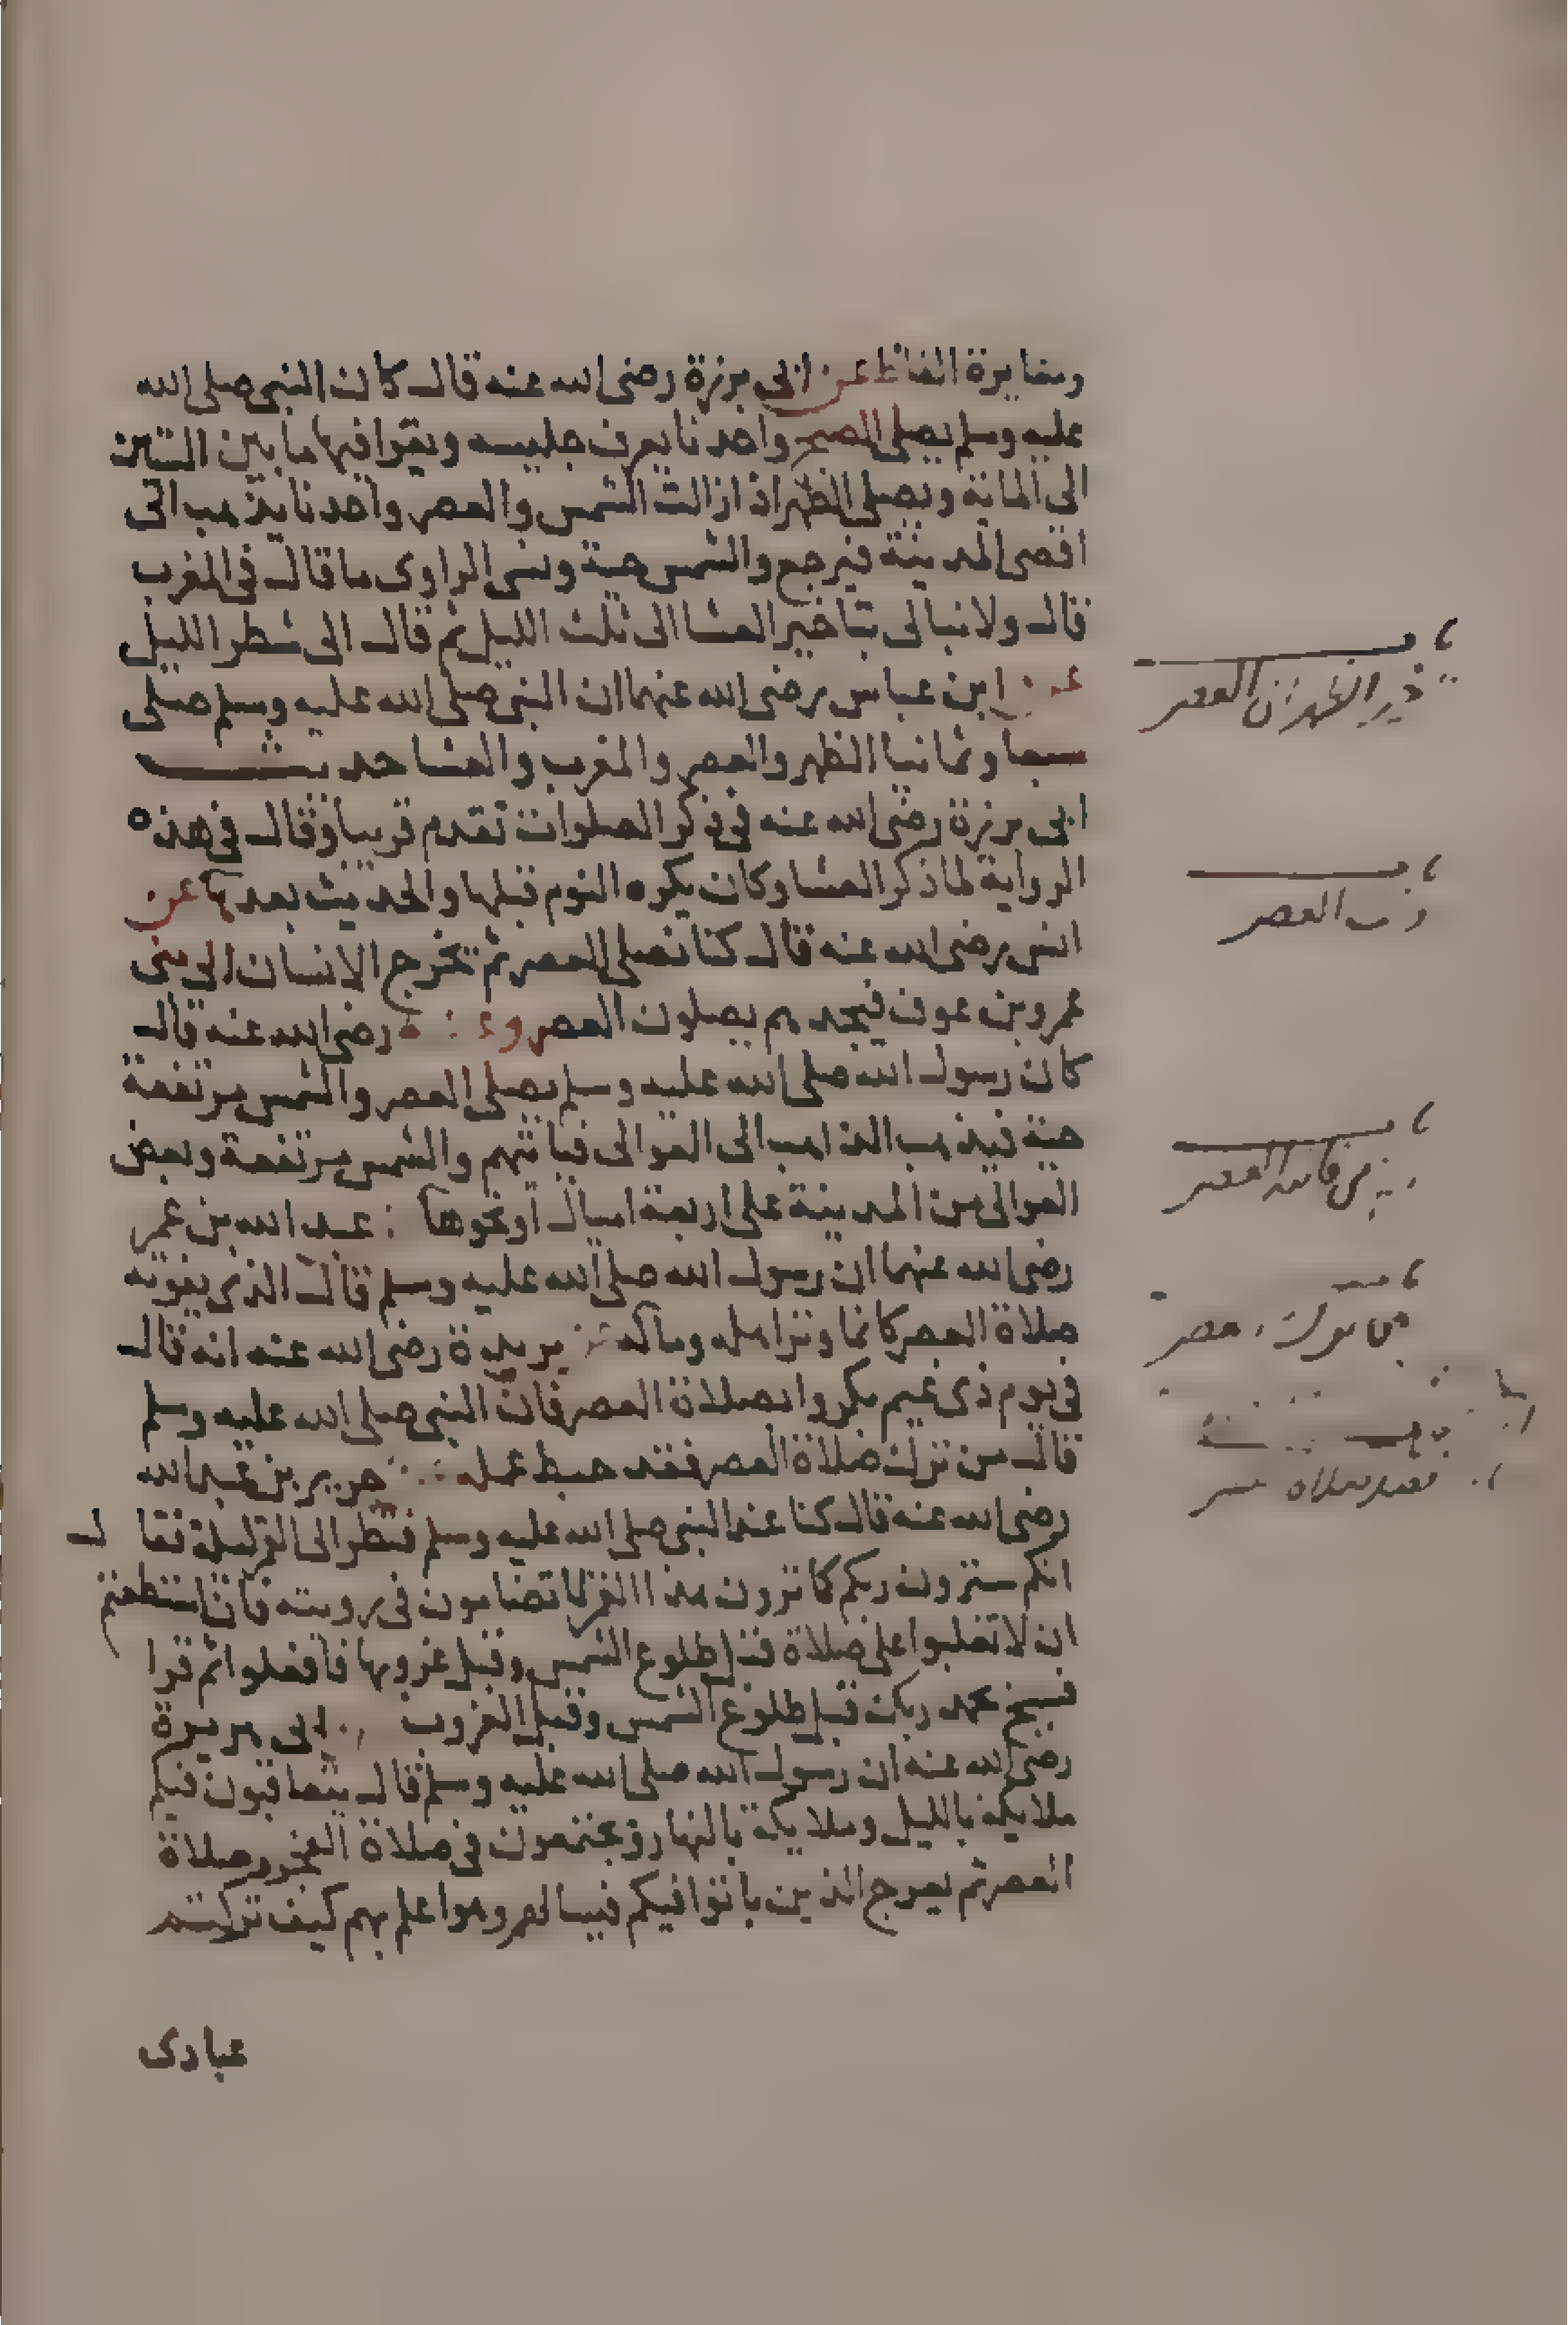 ومغايرة الفاظ عن ابى برزة رضى الله عنه قال كان النبى صلى الله
عليه وسلم يصلى الصبح واحدنا يعرف جليسه ويقرا فيها ما بين الستين
الى الماية ويصلى الظهر اذا زالت الشمس والعصر واحدنا يذهب الى
اقصى المدينة فيرجع والشمس حية ونسى الراوى ما قال فى المغرب
قال ولا يبالى بتاخير العشا الى ثلث الليل ثم قال الى شطر الليل
عن ابن عباس رضى الله عنهما ان النبى صلى الله عليه وسلم صلى
سبعا وثمانيا الظهر والعصر والمغرب والعشا حديث
ابى برزة رضى الله عنه فى ذكر الصلوات تقدم قريبا وقال فى هذه
الرواية لما ذكر العشا وكان يكره النوم قبلها والحديث بعدها عن
انس رضى الله عنه قال كنا نصلى العصر ثم يخرج الانسان الى بنى
عمرو بن عوف فيجدهم يصلون العصر رضى الله عنه قال
كان رسول الله صلى الله عليه وسلم يصلى العصر والشمس مرتفعة
حية فيذهب الذاهب الى العوالى فياتيهم والشمس مرتفعة وبعض
العوالى من المدينة على اربعة اميال او نحوها عبد الله بن عمر
رضى الله عنهما ان رسول الله صلى الله عليه وسلم قال الذى يفوته
صلاة العصر كانما وتر اهله وماله بريدة رضى الله عنه انه قال
فى يوم ذى غيم بكروا بصلاة العصر فان النبى صلى الله عليه وسلم
قال من ترك صلاة العصر فقد حبط عمله جرير بن عبد الله
رضى الله عنه قال كنا عند النبى صلى الله عليه وسلم فنظر الى القمر ليلة فقال
انكم سترون ربكم كما ترون هذا القمر لا تضامون فى رويته فان استطعتم
ان لا تغلبوا على صلاة قبل طلوع الشمس وقبل غروبها فافعلوا ثم قرا
فسبح بحمد ربك قبل طلوع الشمس وقبل الغروب ابى هريرة
رضى الله عنه ان رسول الله صلى الله عليه وسلم قال يتعاقبون فيكم
ملايكة بالليل وملايكة بالنهار ويجتمعون فى صلاة الفجر وصلاة
العصر ثم يعرج الذين باتوا فيكم فيسالهم وهو اعلم بهم كيف تركتم
عبادى
العصر
العصر
صلاة